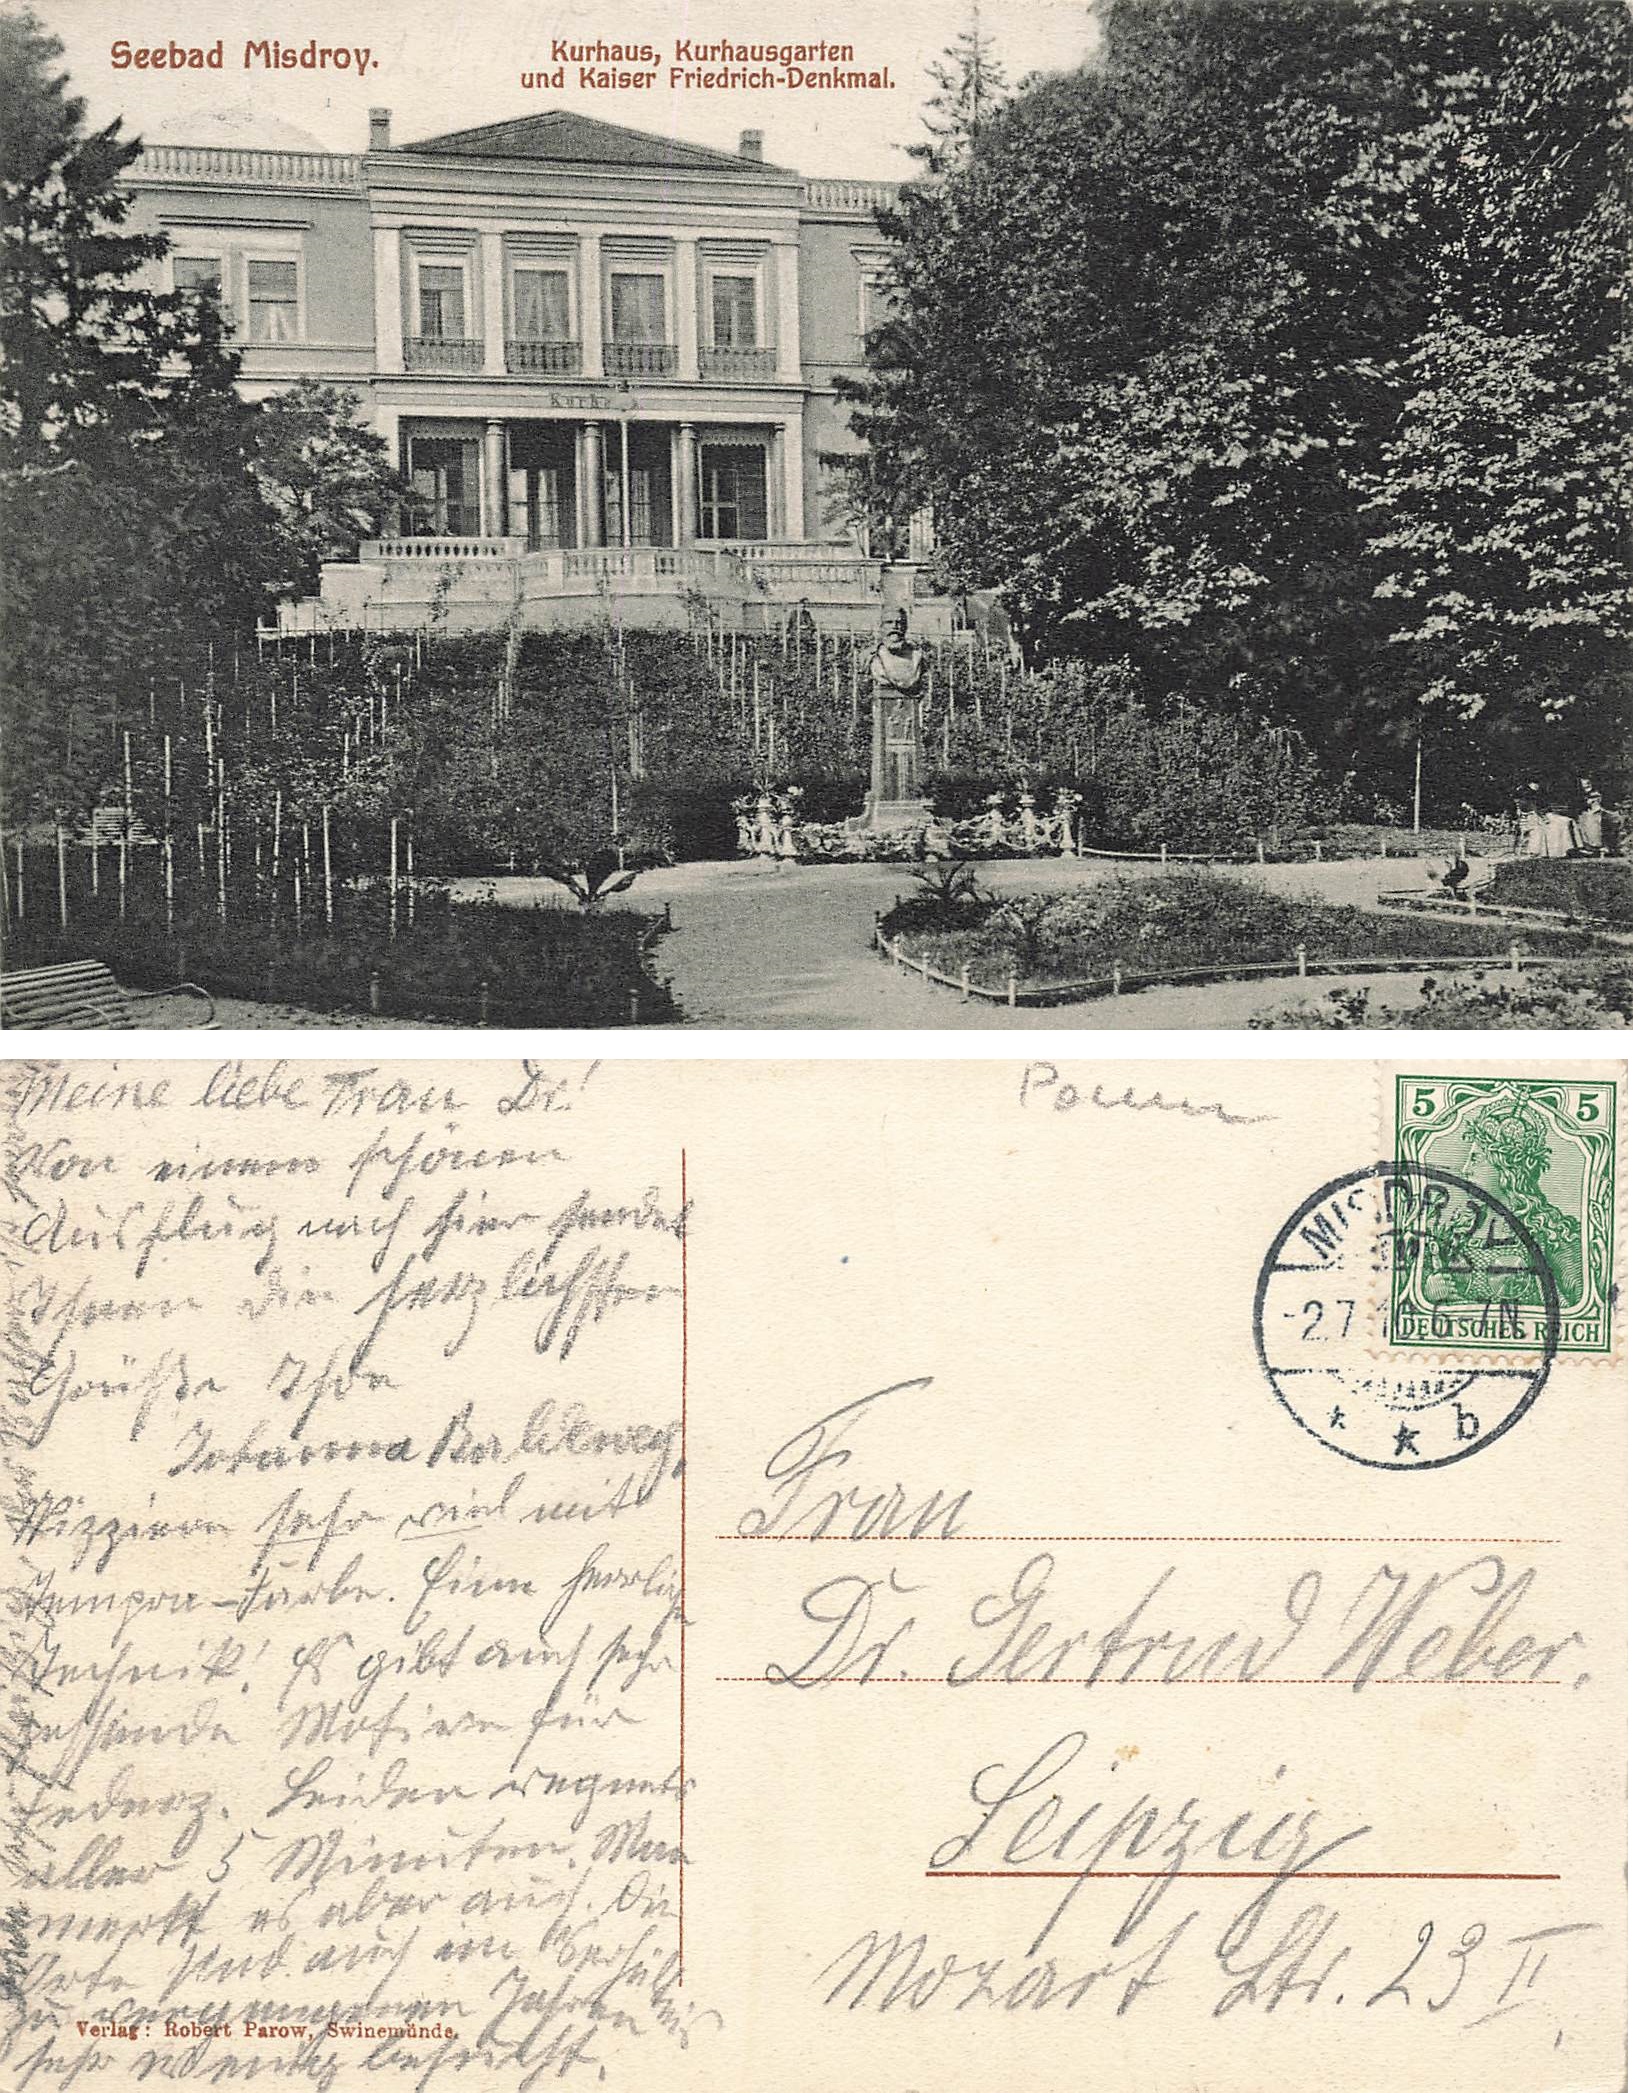 Seebad Misdroy.
Kurhaus, Kurhausgarten
und Kaiser Friedrich-Denkmal.
Kurha
Meine liebe Frau Dr!
Von einem schönen
Ausflug nach hier sendet
Ihnen die herzlichsten
Grüße Ihre
Johanna Baldeweg.
Skizziere sehr viel mit
Tempera-Farbe. Eine herrliche
Technik! Es gibt auch sehr
passende Motive für
Federz. Leider regnets
aller 5 Minuten. Man
merkt es aber auch. Die
Orte sind auch im Verhältnis
zu vergangenen Jahren
sehr wenig besucht.
Verlag: Robert Parow, Swinemünde.
Pomm
5 5
DEUTSCHES REICH
MISDROY
-2.7.10.6-7N
* * b
Frau
Dr. Gertrud Weber.
Leipzig
Mozart Str. 23 II